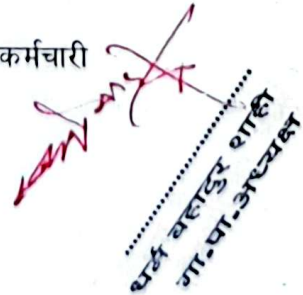 कर्मचारी
धर्म बहादुर शाही
गा.पा.अध्यक्ष